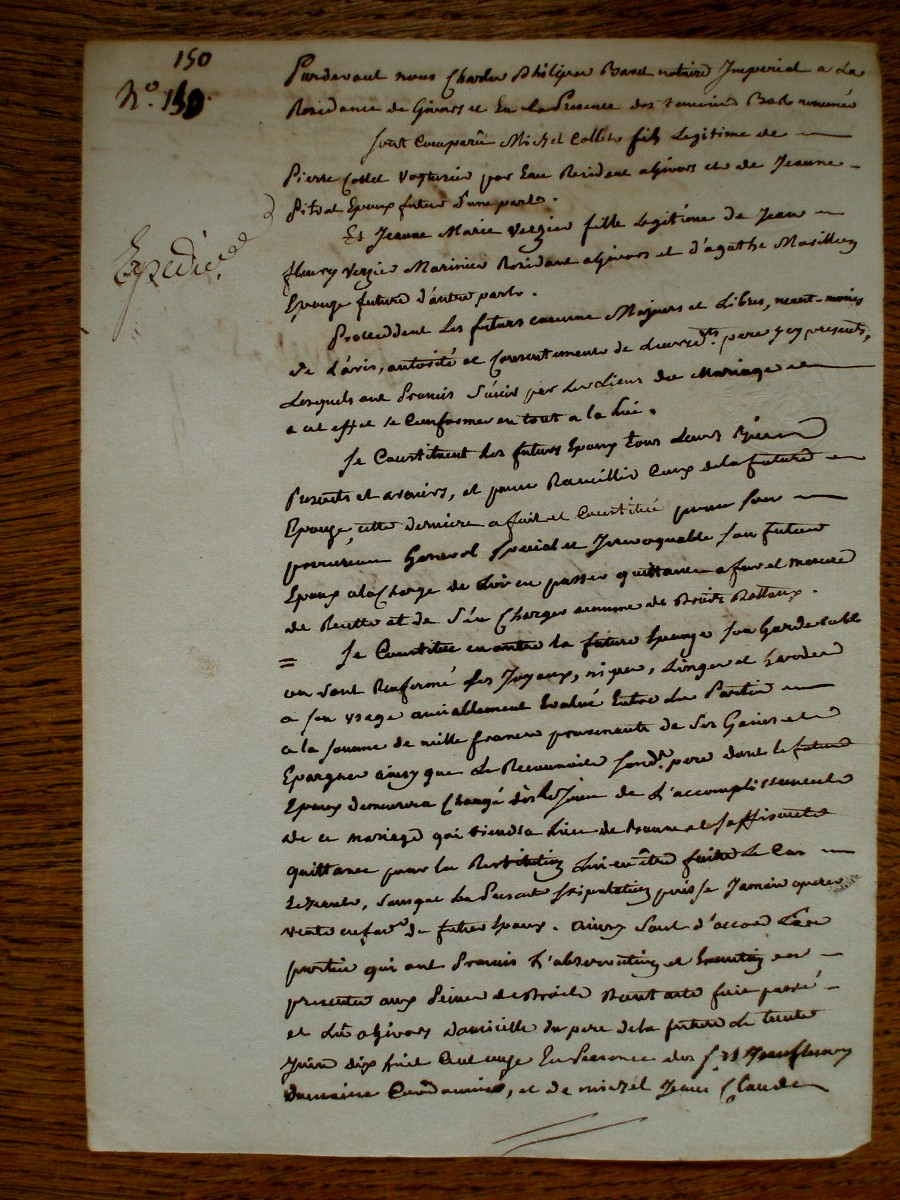 150
N.° 150.
Expedié
Pardevant nous Charles Philipes notaire Imperial a La
Residance de Givors et En La Presence des temoins Bas nommés
sont Comparû Michel Collet fils Legitime de
Pierre Collet Voiturier par Eau Resident a Givors et de Jeanne
Pitrat Epoux futur d'une part.
Et Jeanne Marie Verzier fille Legitime de Jean
fleury Verzier Marinier Residant a Givors et d'agathe
Epouze future d'autre part.
Proceddent Les futurs comme Majeurs et Libres, neant-moins
de L'avis, autorité et Consentement de Leursd.ts pere icy presents,
Lesquels ont Promis S'unir par Les Liens du Mariage et
a cet effet se Conformer en tout a la Loi.
Se Constituent Les futurs Epoux tous Leurs Biens
Presents et avenirs, et pour Recuillir Ceux de la future
Epouze, cette derniere a fait et Constitué pour son
procureur General Special et Irrevoquable son futur
Epoux a la Charge de Lui en passer quittance a fur et mesure
de Recette et de S'en Charger comme de Biens Dottaux.
= Se Constitue en outre la future Epouze son Garderobbe
ou sont Renfermé ses Joyaux, nipes, Linges et hardes
a son usage amiallement Evalué Entre les Parties
a la somme de mille francs provenante de ses Gains et
Epargnes ainsy que Le Reconnoit sond.t pere dont le futur
Epoux demeurera Chargé dès Le Jour de L'accomplissement
de ce mariage qui tiendra Lieu de bonne et Suffisante
quittance pour la Restitution Lui en être faite Le Cas
Echeant, sans que La Presente stipulation puisse Jamais operer
vente en fav.r du futur Epoux. ainsy sont d'accord Les
parties qui ont Promis L'observation et Execution des
presentes aux Peines de Droit Dont acte fait passé
et Lû a Givors Domicille du pere de la future Le trente
Juin dix huit Cent onze En Presence des S.rs Jean fleury
Cordonnier, et de michel Jean Claude